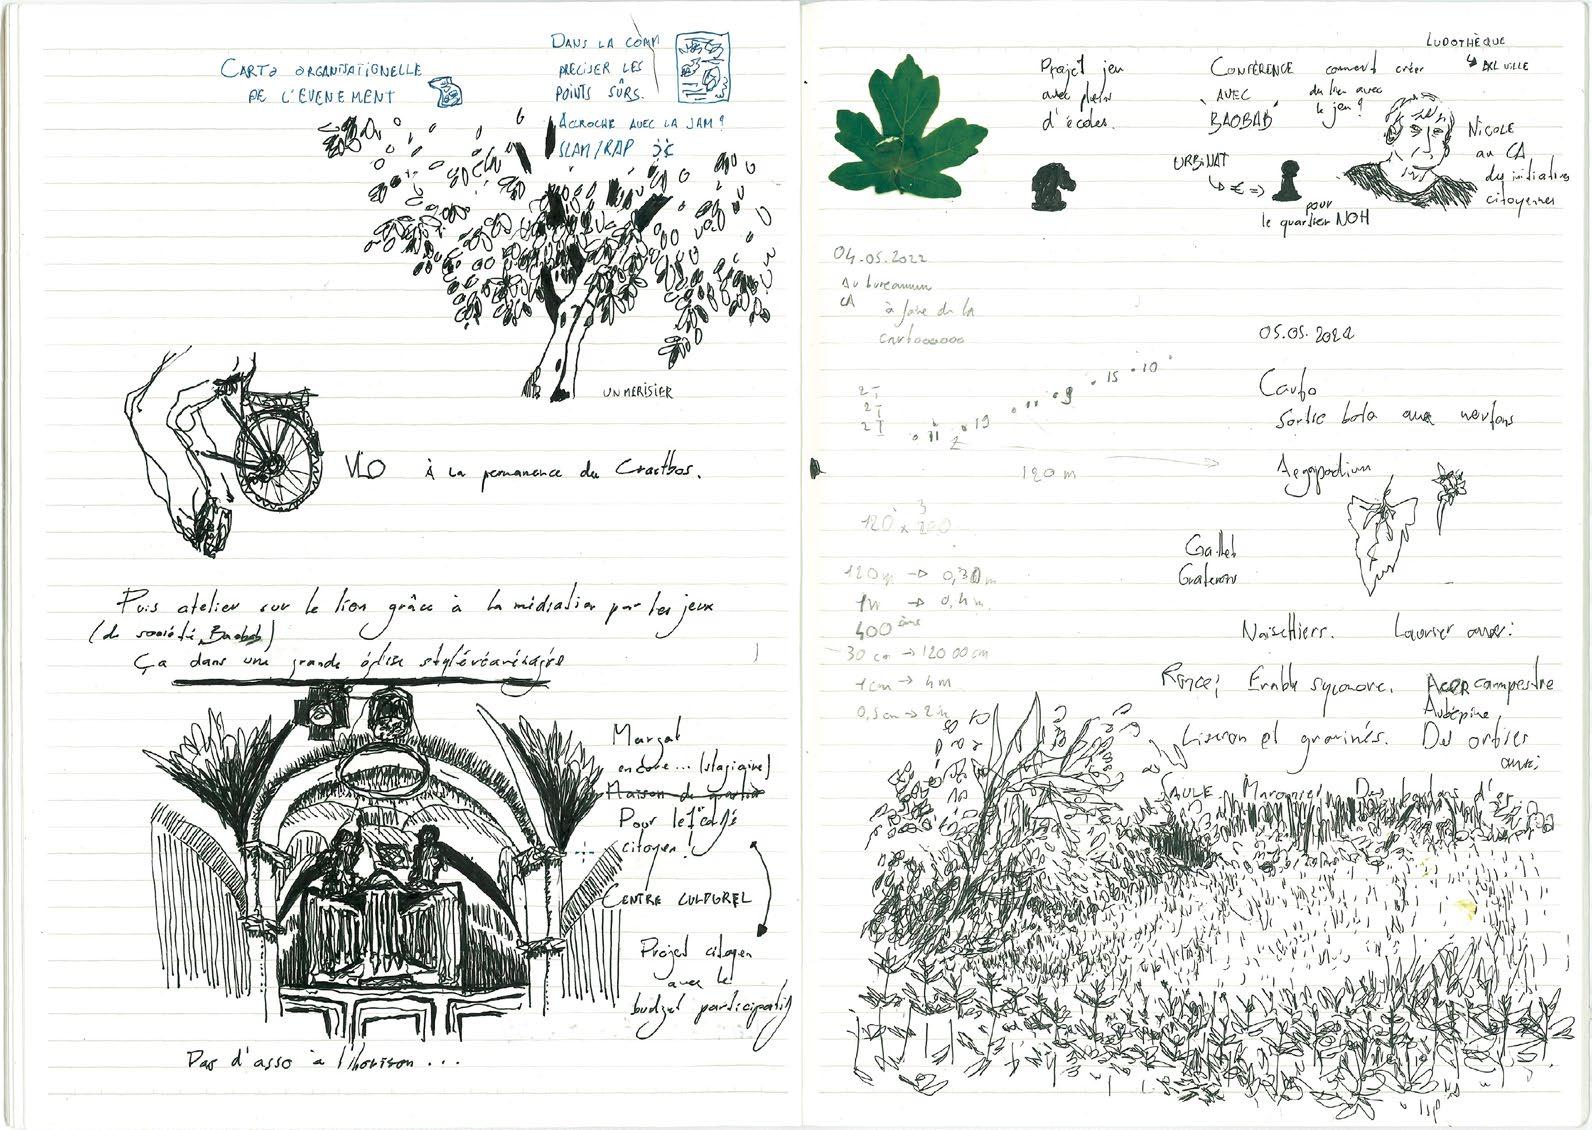 CARTO ORGANISATIONELLE
DE L'ÉVENEMENT
DANS LA COMM
PRÉCISER LES
POINTS SÛRS.
ACCROCHE AVEC LA JAM?
SLAM/RAP
UN MERISIER
VLO À la permanence du
Puis atelier sur le lien grâce à la médiation par les jeux
(de société, Baobab)
Ça dans une grande église
Margat
encore... (stagiaire)
Maison de quartier
Pour le
citoyen!
CENTRE CULTUREL
Projet citoyen
avec le
budget participatif
Pas d'asso à l'horison...
Projet jeu
avec plein
d'écoles.
CONFÉRENCE
AVEC
BAOBAB
comment créer
du lien avec
le jeu?
LUDOTHÈQUE
↳ XL VILLE
NICOLE
au CA
du initiatives
citoyennes
URBiNAT
↳ € =>
pour
le quartier NOH
04.05.2022
Au
CA
à faire de la
cartooooooo
05.05.2022
Sortie bota
Aegopodium
2I
2I
2I
11
2
19
11
9
15
10
120 m
120 x
120m → 0,30m
1m → 0,4m
400ème
30 cm → 12000cm
1cm → 4m
0,5cm → 2m
Gaillet
Grateron
Noisettiers. Laurier
Ronce; Erable sycomore. Acer campestre
Aubépine
Liseron et graminés. Des orties
aussi
SAULE Maronnier Des boutons d'or